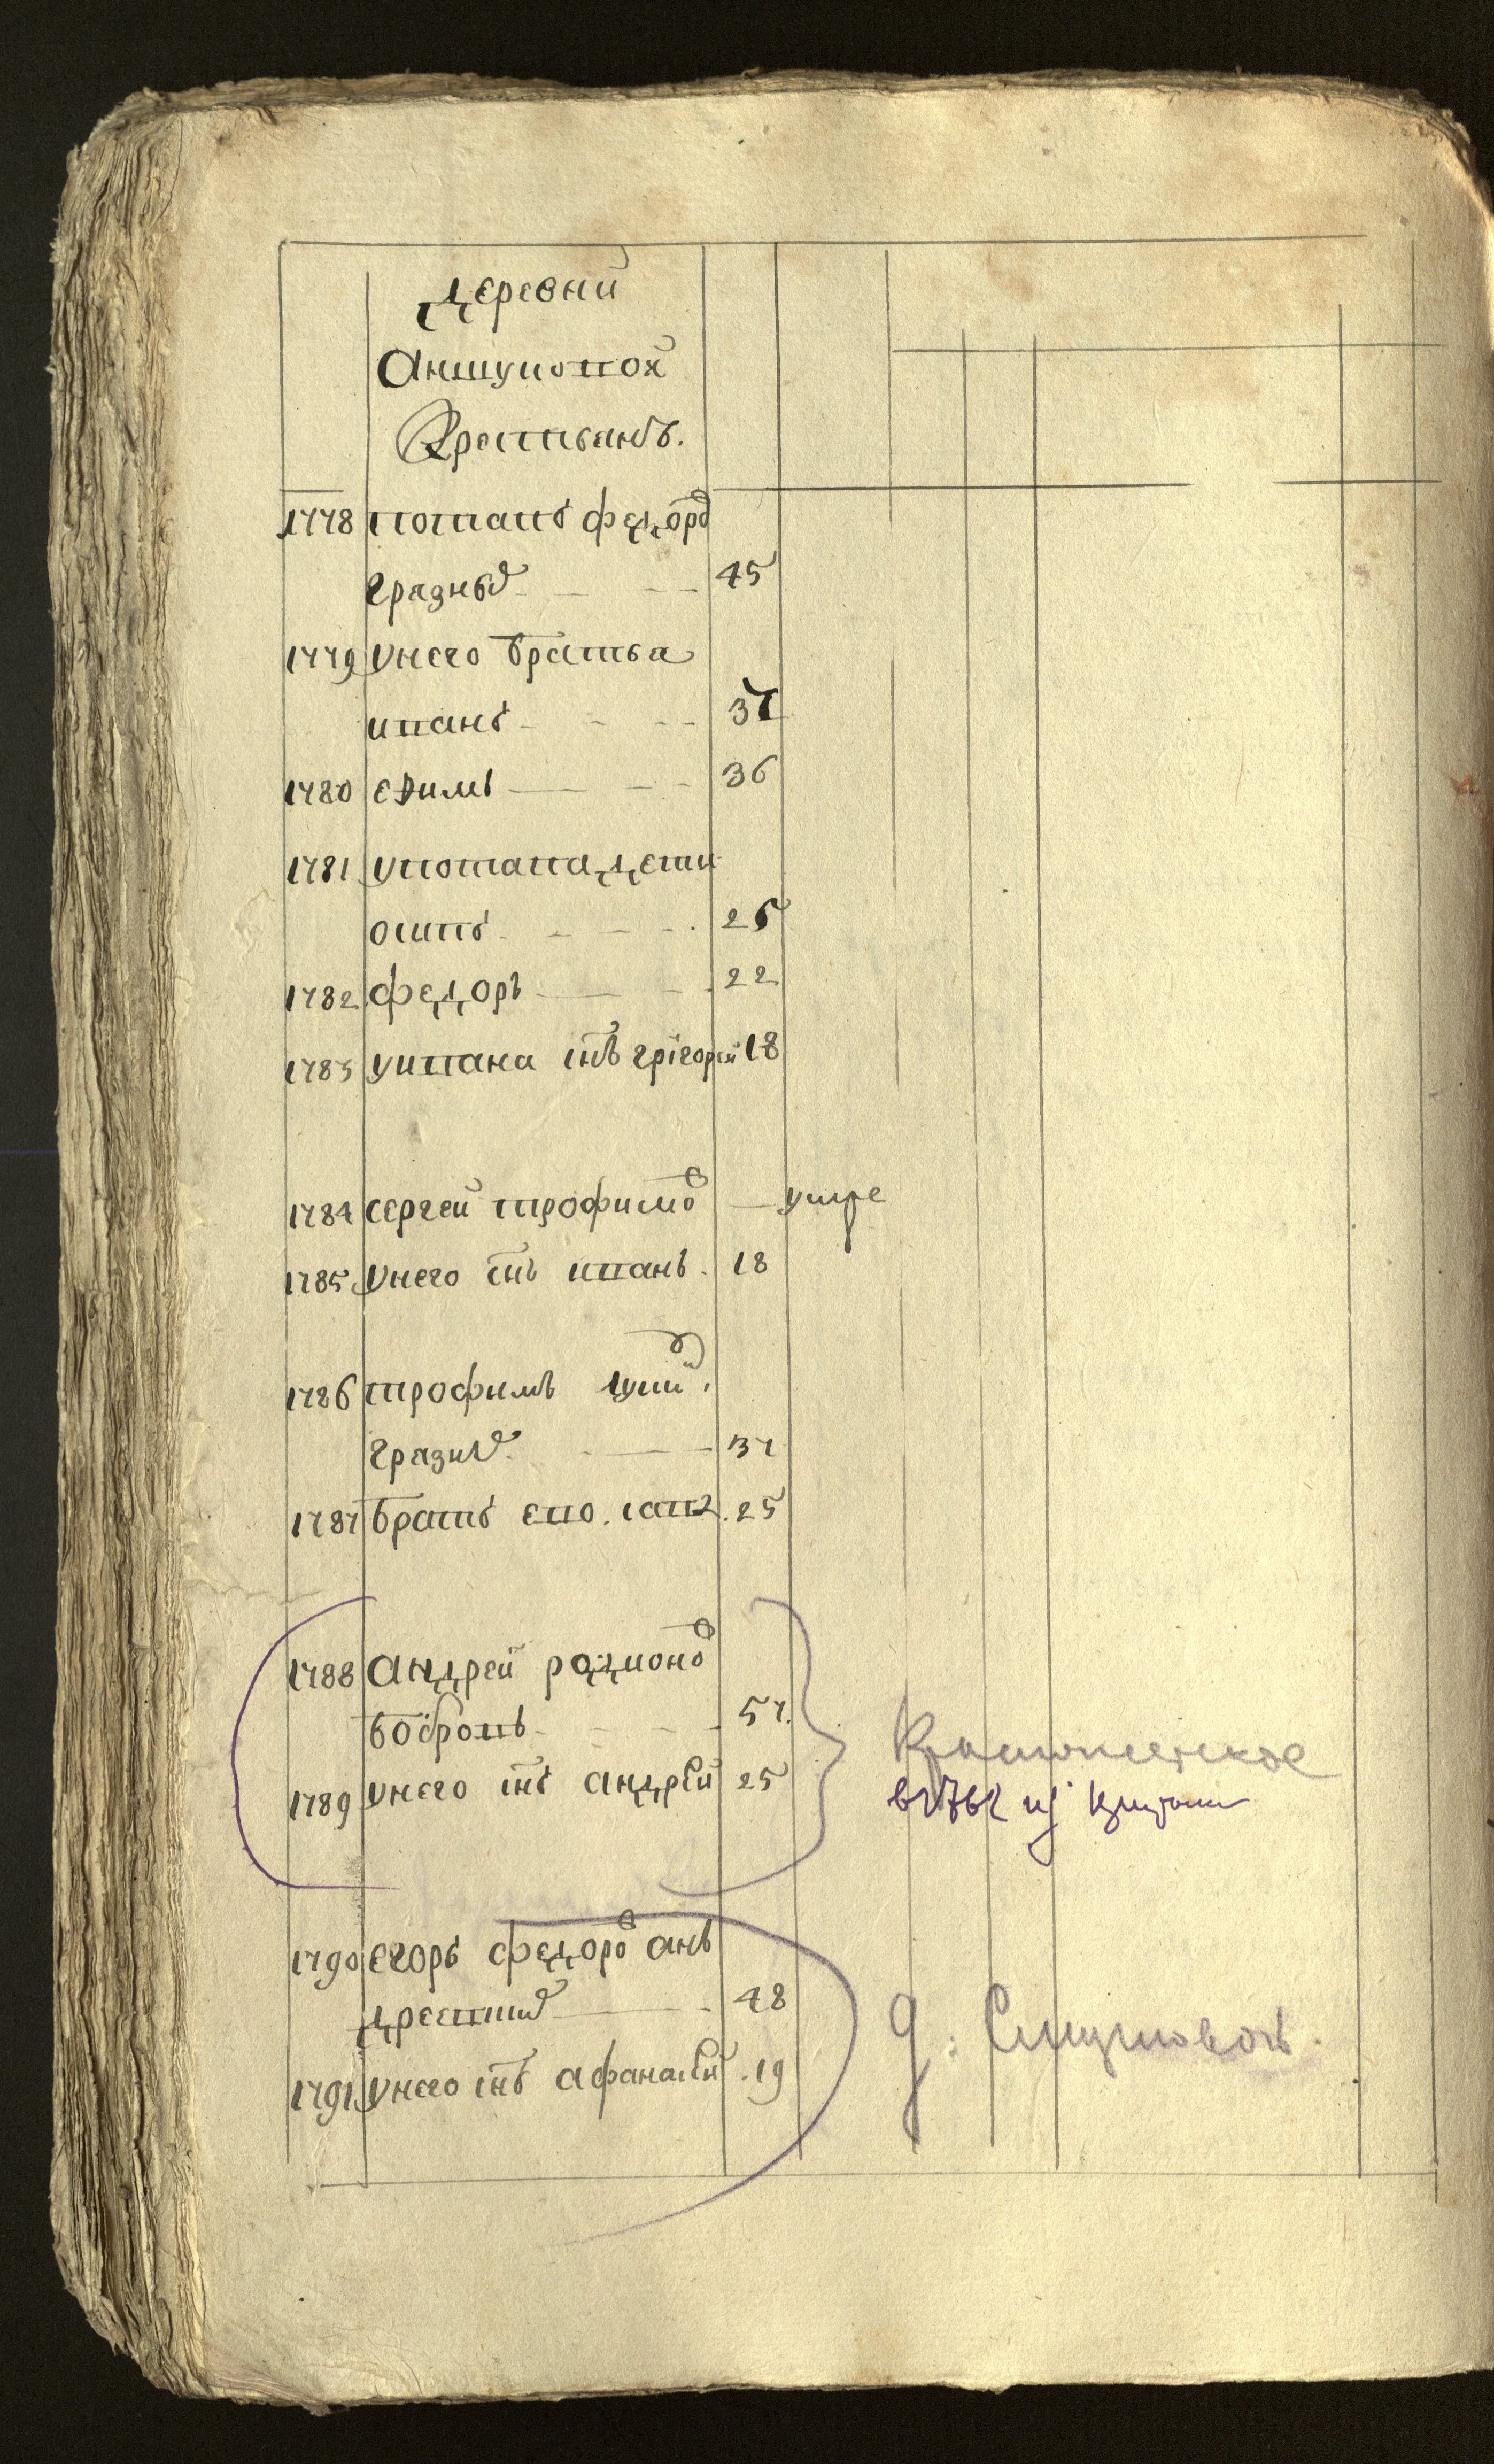 деревни
Аншуковой
Крестьянъ.
1778 потапъ федоровъ
грязныхъ 45
1779 у него братья
иванъ 37
1780 ефимъ 36
1781 у потапа дети
осипъ 25
1782 федоръ 22
1783 у ивана сн̃ъ григорей 18
1784 сергей трофимовъ умре
1785 у него сн̃ъ иванъ 18
1786 трофимъ
грязныхъ 37
1787 братъ ево савва 25
1788 андрей родионовъ
бобровъ 57
1789 у него сн̃ъ андрей 25
1790 егоръ федоровъ ан
древныхъ 48
1791 у него сн̃ъ афанасей 19
д.